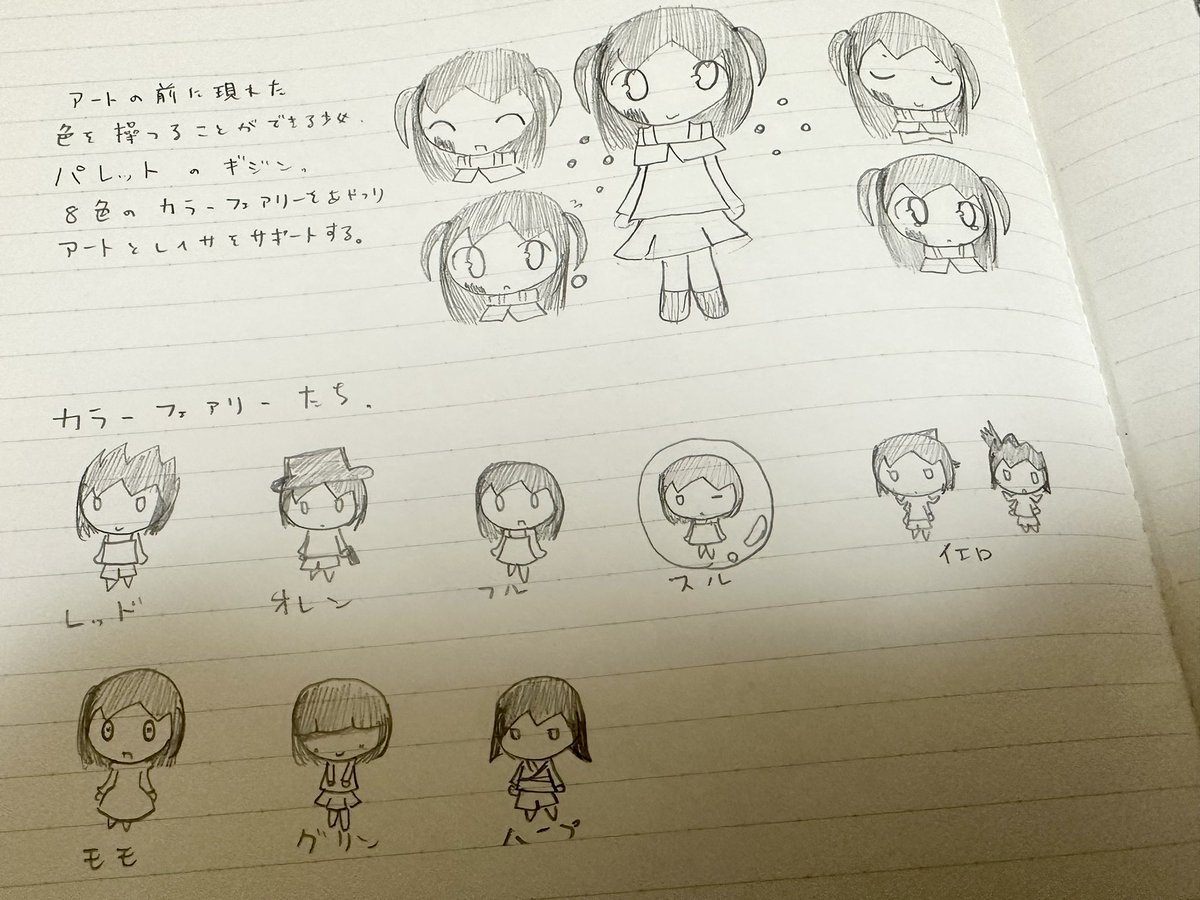 アートの前に現れた
色を操つることができる少女.
パレットのギジン。
8色のカラーフェアリーをあやつり
アートとレイサをサポートする。
カラーフェアリーたち.
レッド
オレン
フル
スル
イエロ
モモ
グリン